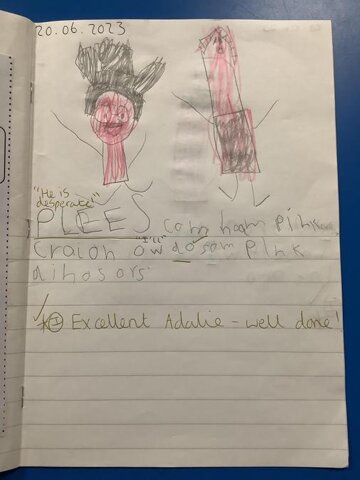 20.06.2023
"He is
desperate!"
PLEES cam hoam pink
Craion "I'll" ow do som pink
dihosors
Excellent Adalie - well done!